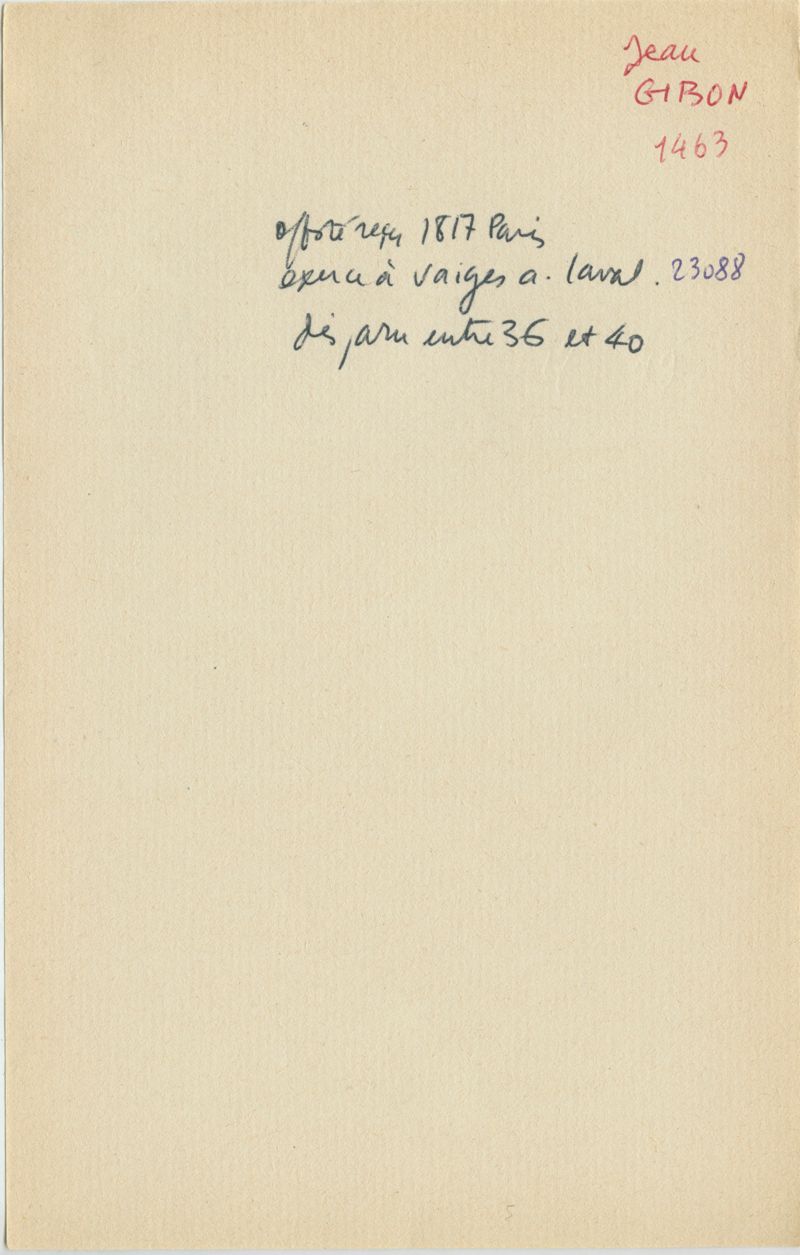 Jean
GIBON
1463
reçu 1817 Paris
exerce à Vaiges a. Laval. 23088
disparu entre 36 et 40